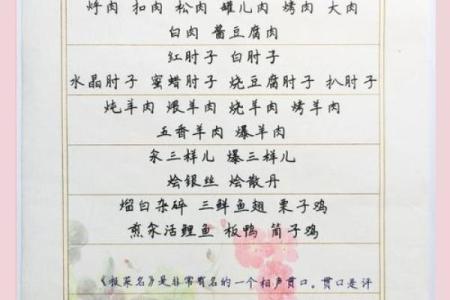 炖肉 扣肉 松肉 罐儿肉 烤肉 大肉
白肉 酱豆腐肉
红肘子 白肘子
水晶肘子 蜜蜡肘子 烧豆腐肘子 扒肘子
炖羊肉 煨羊肉 烧羊肉 烤羊肉
五香羊肉 爆羊肉
氽三样儿 爆三样儿
烩银丝 烩散丹
熘白杂碎 三鲜鱼翅 栗子鸡
煎氽活鲤鱼 板鸭 筒子鸡
《报菜名》是非常有名的一个相声贯口。贯口是评